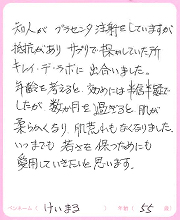 知人が プラセンタ注射をしていますが
抵抗があり サプリで探していた所
キレイ・デ・ラボに 出合いました。
年齢を考えると、効めには半信半疑で
したが 数か月を過ぎると 肌が
柔らかくなり、肌荒れもなくなりました。
いつまでも 若さを 保つためにも
愛用していきたいと思います。
ペンネーム けいまる 年齢 55 歳